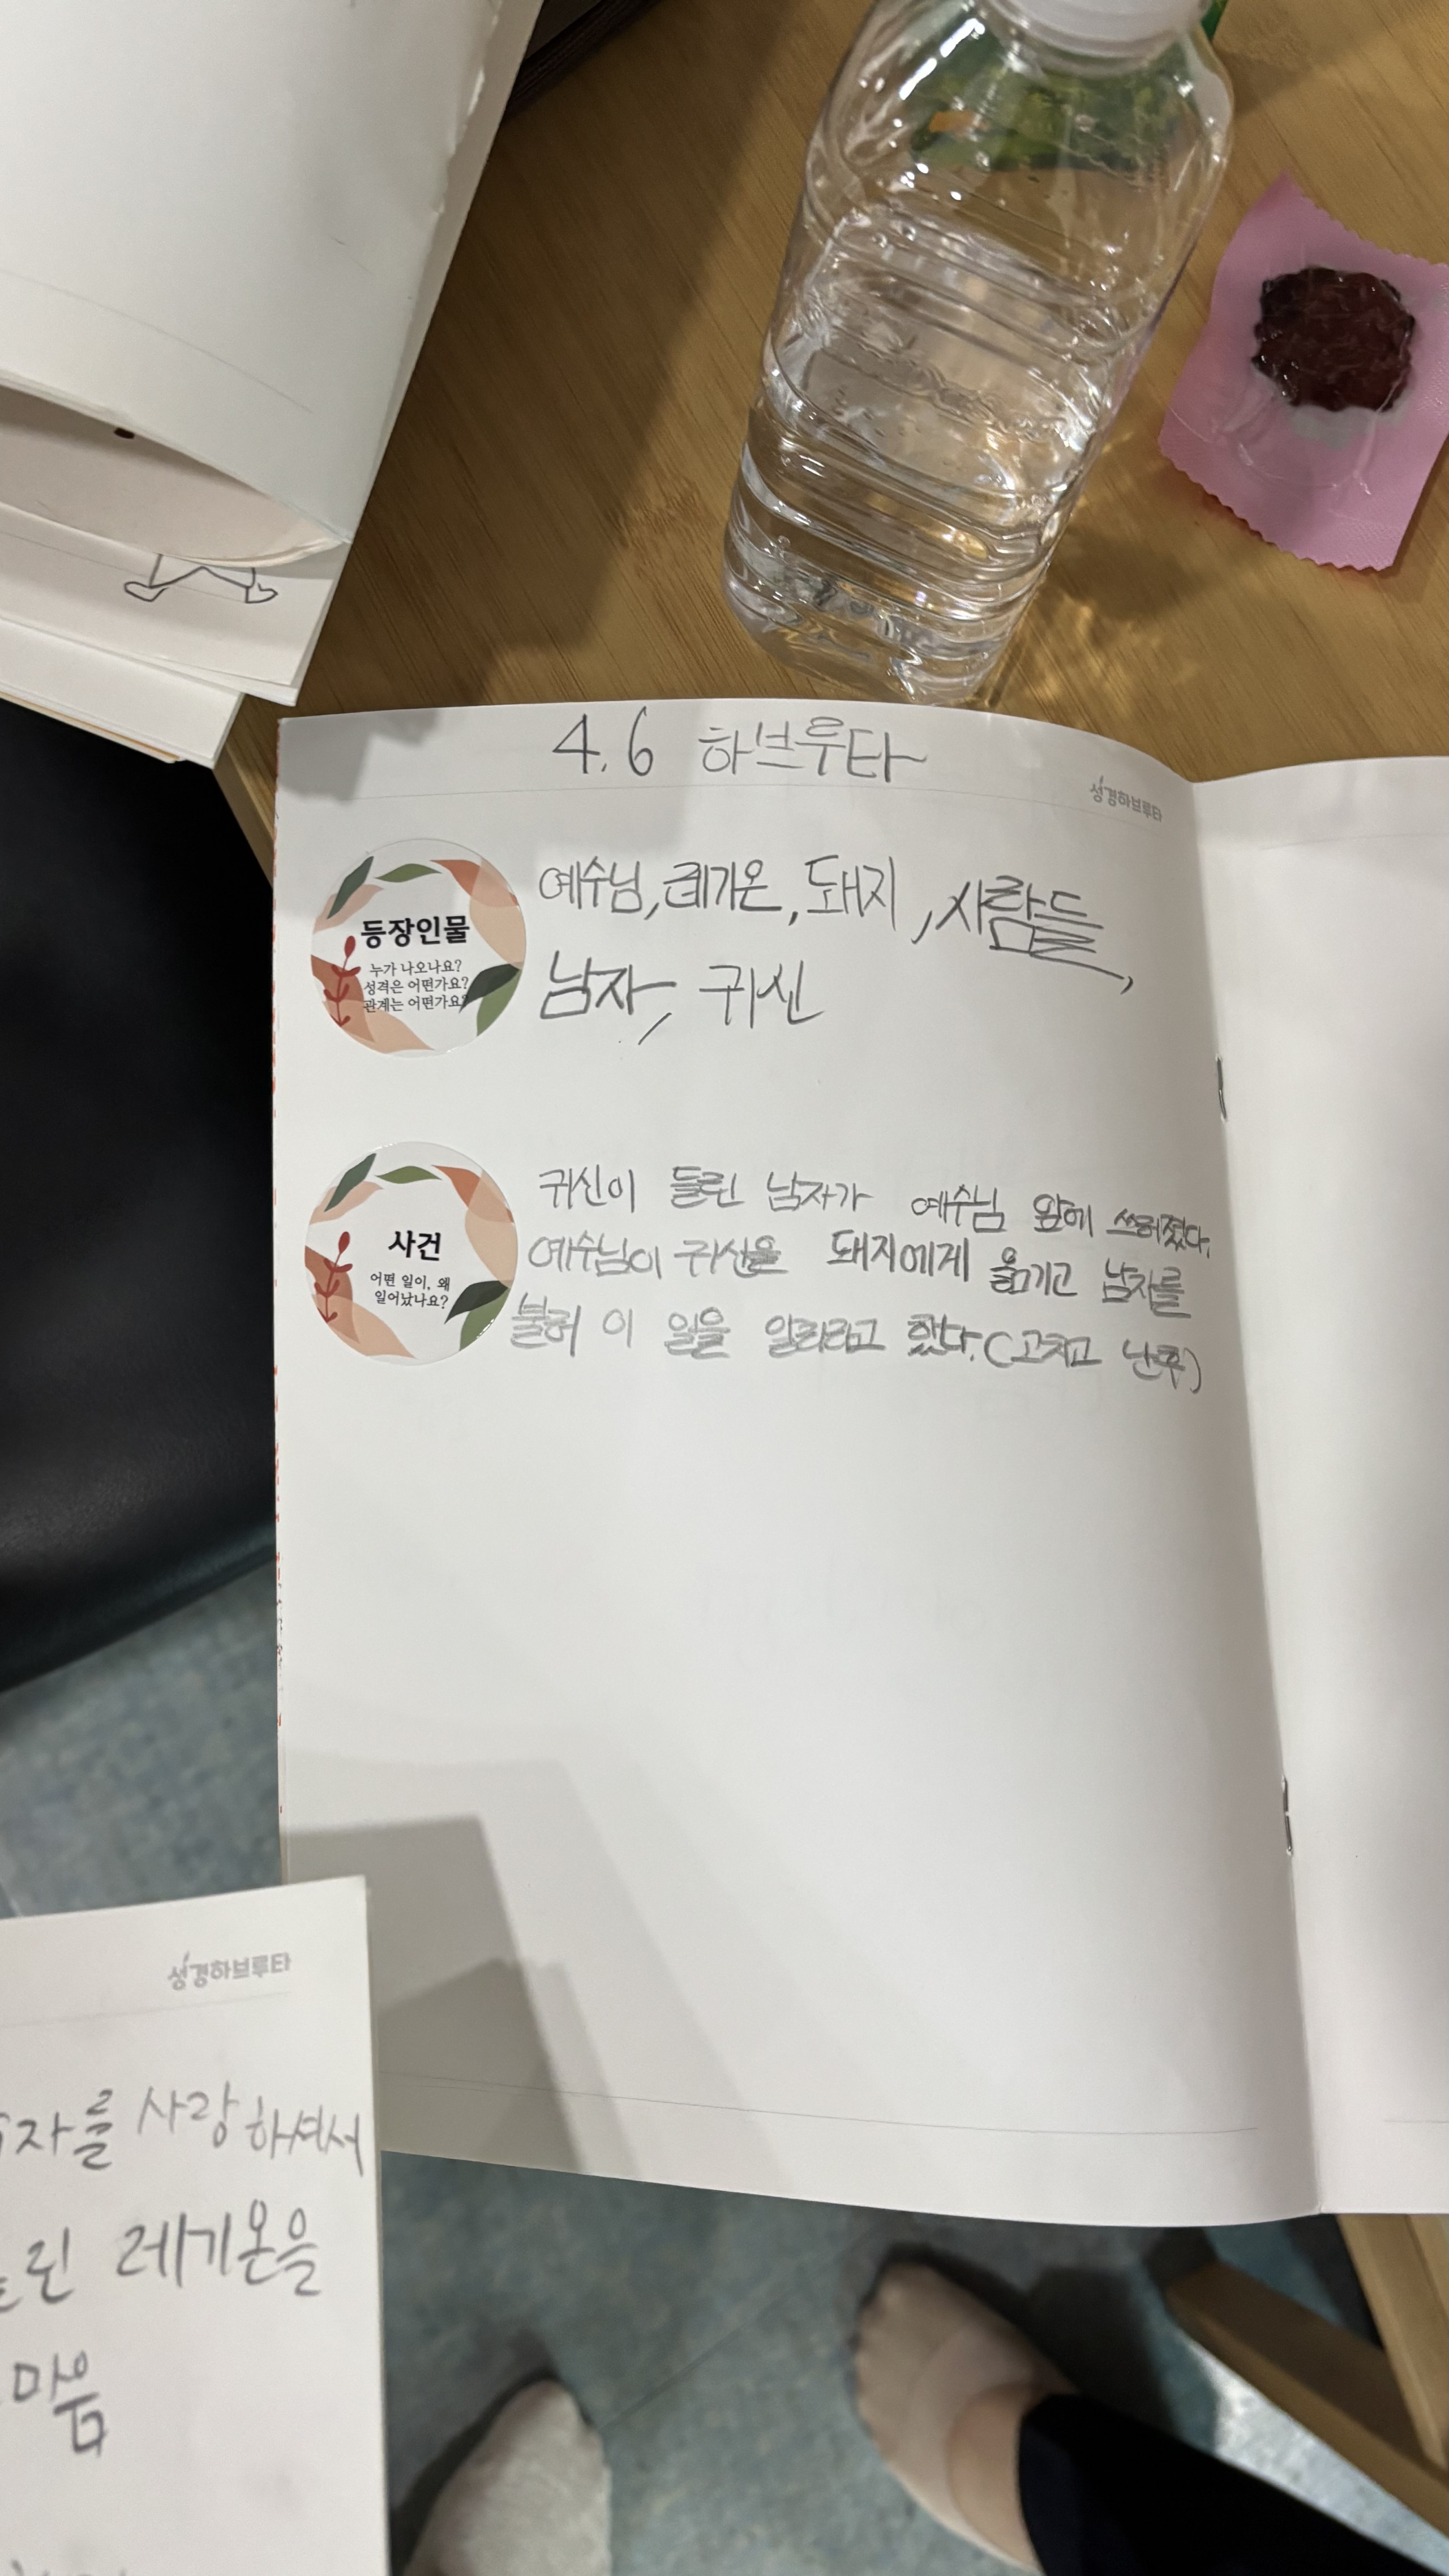 4.6 하브루타
성경하브루타
등장인물
누가 나오나요?
성격은 어떤가요?
관계는 어떤가요?
예수님, 레기온, 돼지, 사람들,
남자, 귀신
사건
어떤 일이, 왜
일어났나요?
귀신이 들린 남자가 예수님 앞에 쓰러졌다.
예수님이 귀신을 돼지에게 옮기고 남자를
불러 이 일을 알리라고 했다. (고치고 난후)
성경하브루타
자를 사랑하셔서
린 레기온을
마음